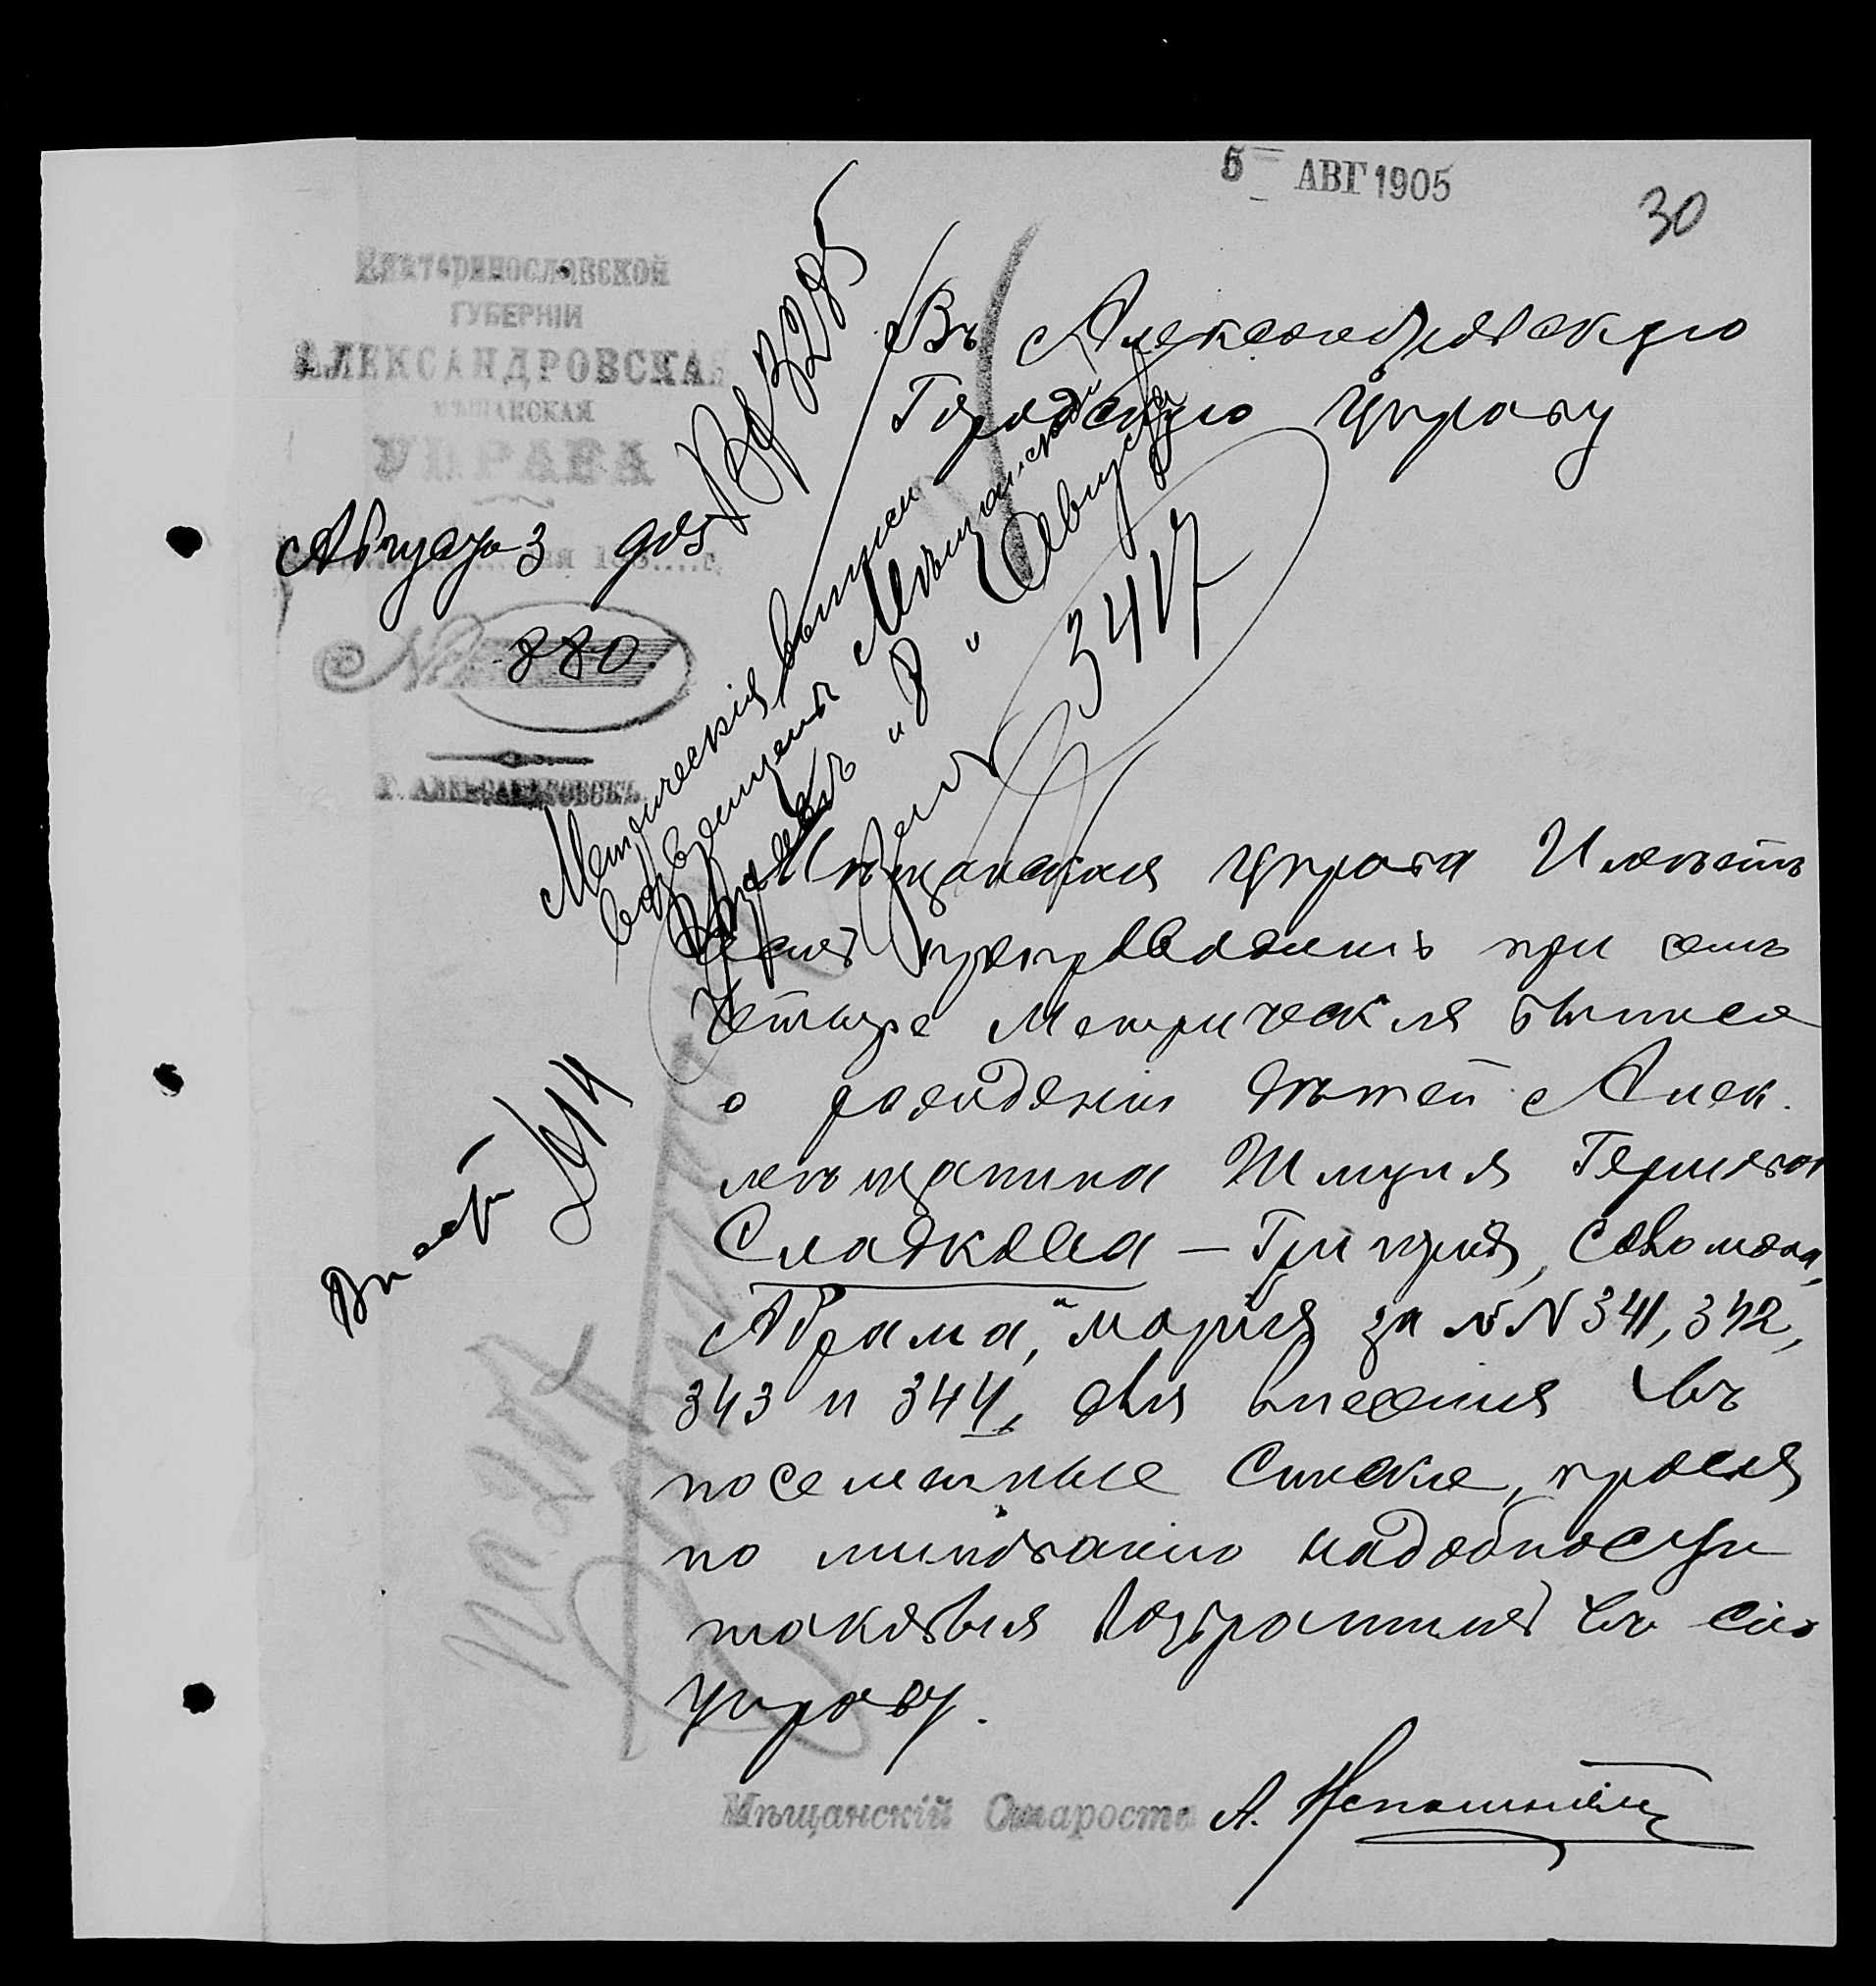 5 АВГ 1905
30
Екатеринославской
ГУБЕРНІИ
АЛЕКСАНДРОВСКАЯ
МѢЩАНСКАЯ
УПРАВА
Августа 3 дня
№ 880
Г. АЛЕКСАНДРОВСКЪ
Вх 3285
Въ Александровскую
Городскую Управу
Метрическія выписи
возвращены Мѣщанской
Управѣ " 8 " Августа
3417
Мѣщанская Управа Имѣетъ
честь препроводить при семъ
Четыре Метрическія выписи
о рожденіи дѣтей Алек.
мѣщанина Шмуля Гершова
Сладкова – Григорія, Соломона,
Абрама, и Марія за №N 341, 342,
343 и 344, для внесенія въ
посемейные Списки, прося
по миновании надобности
таковыя возвратить въ сію
Управу.
Мѣщанскій Староста А.